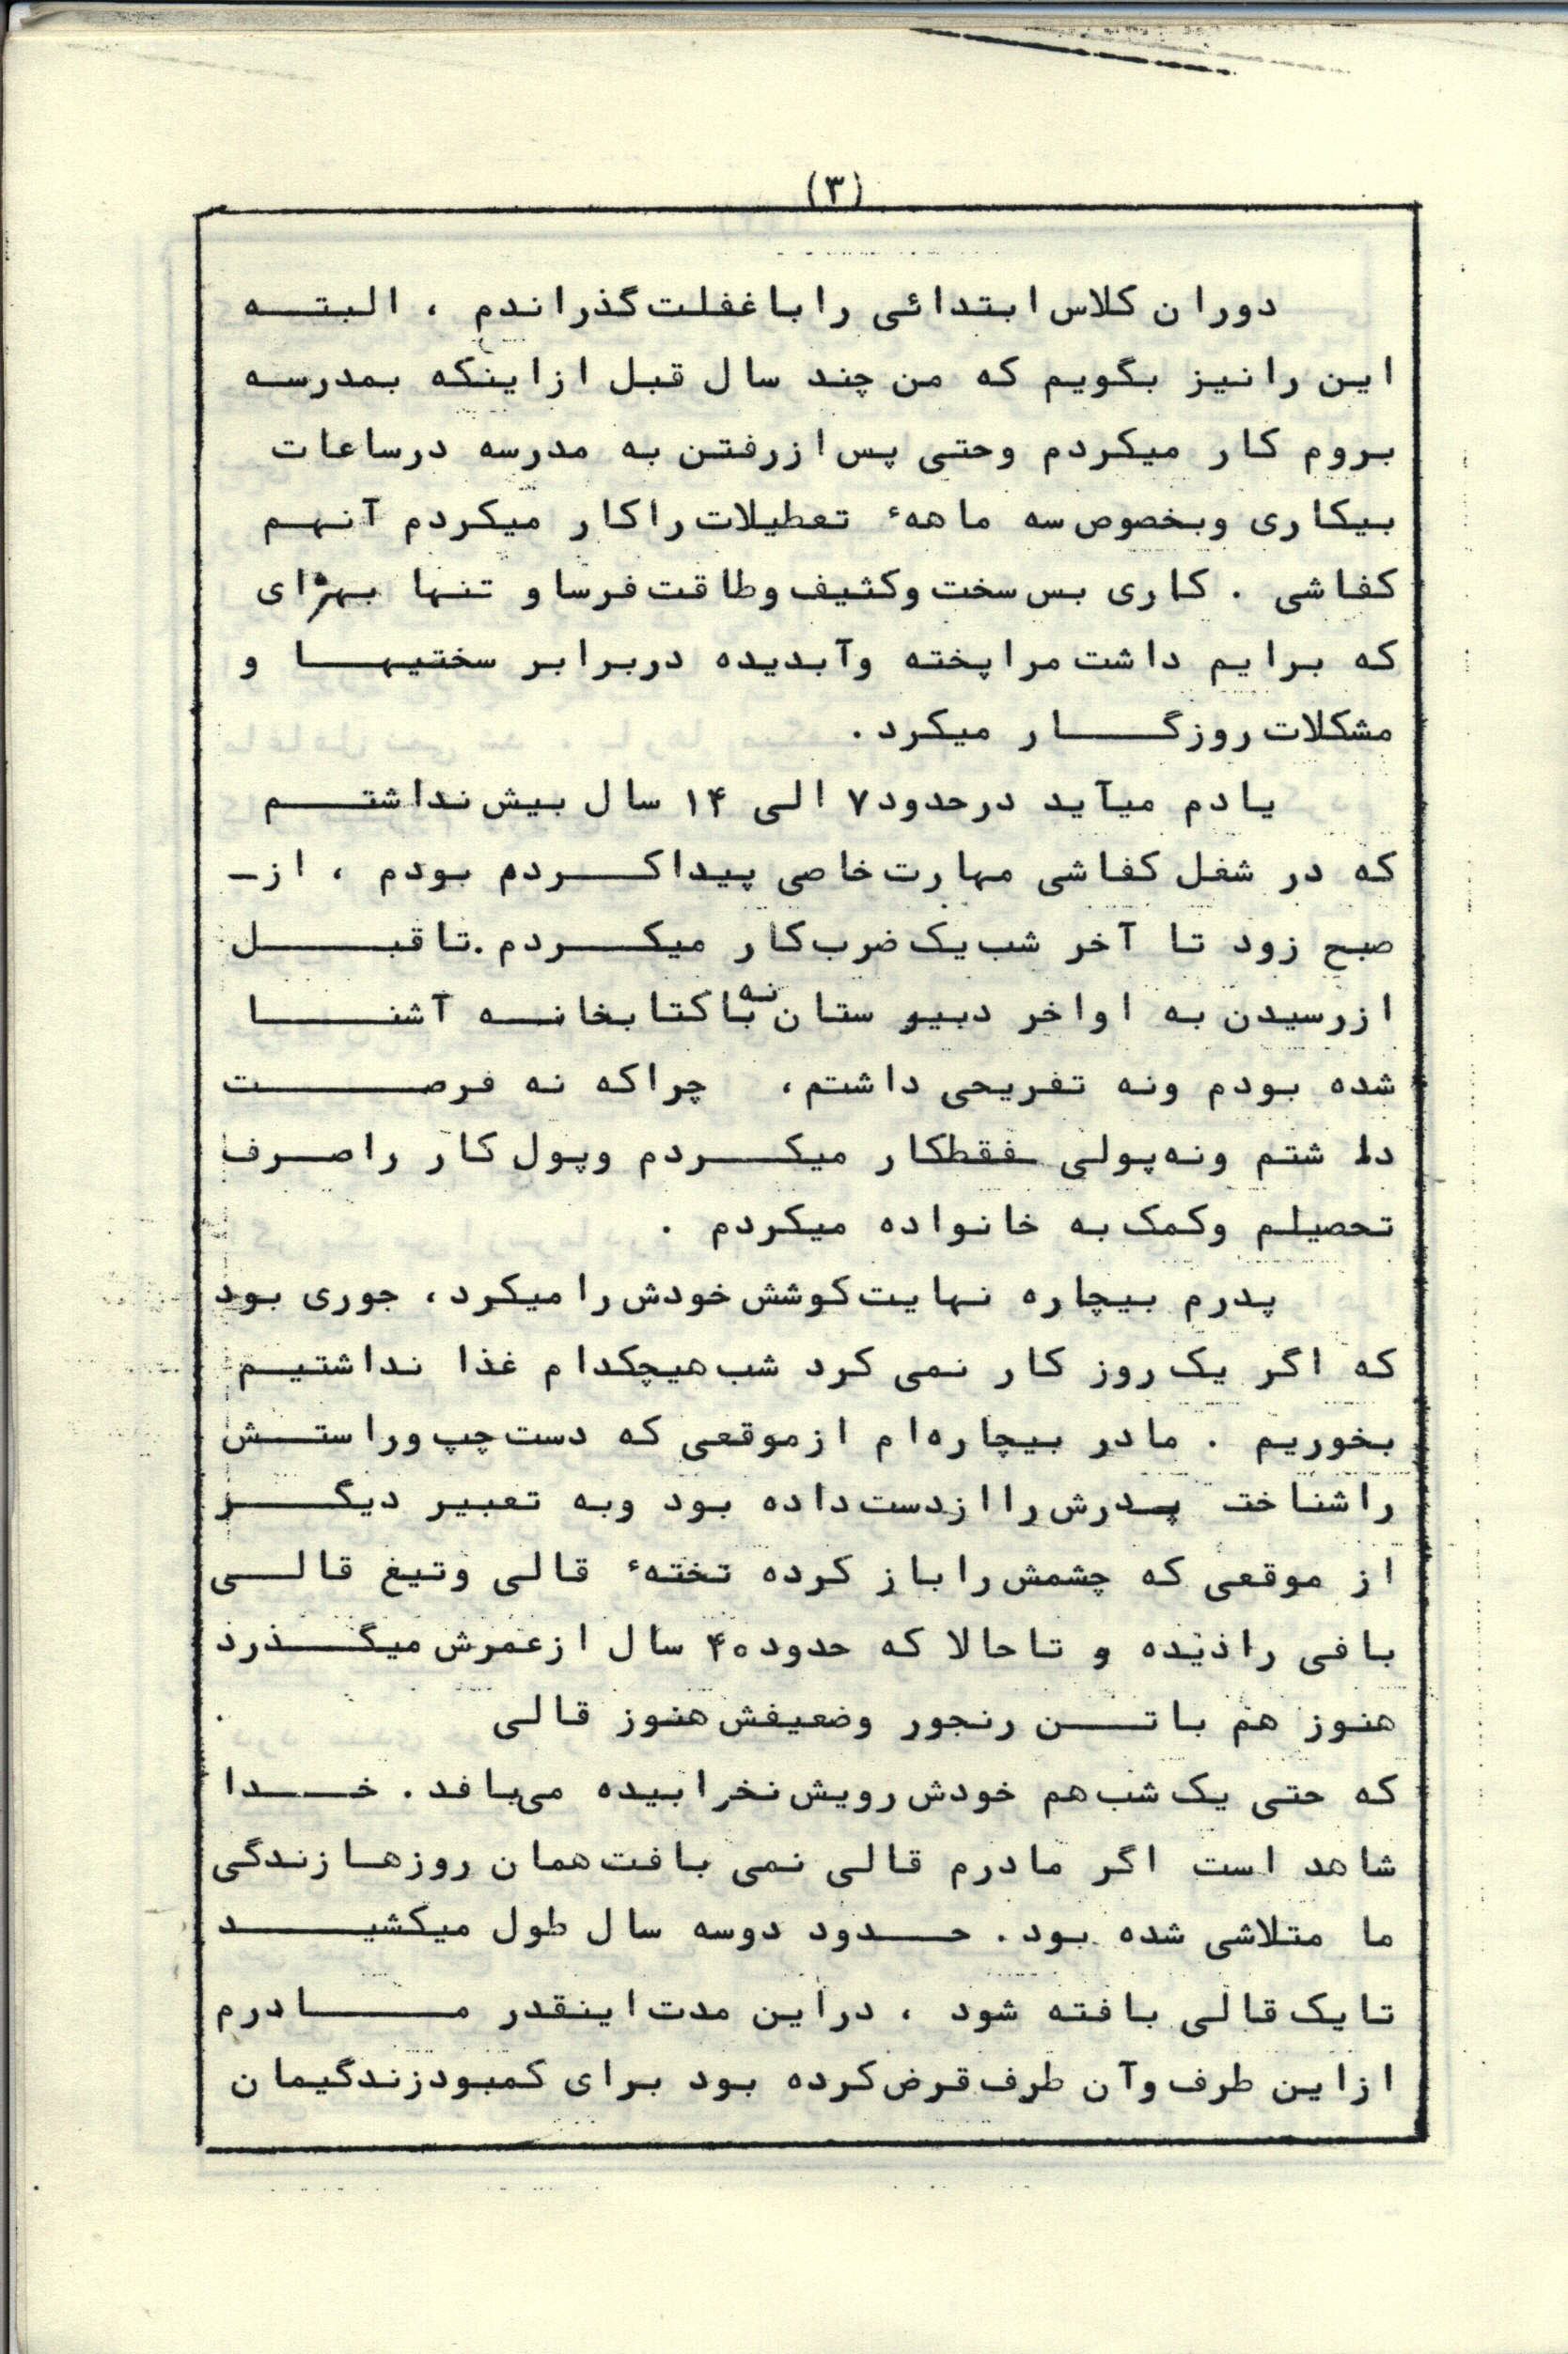 (۳)
دوران کلاس ابتدائی را با غفلت گذراندم ، البته
این را نیز بگویم که من چند سال قبل از اینکه بمدرسه
بروم کار میکردم وحتی پس از رفتن به مدرسه درساعات
بیکاری وبخصوص سه ماههٔ تعطیلات را کار میکردم آنهم
کفاشی . کاری بس سخت وکثیف وطاقت فرسا و تنها بهرهای
که برایم داشت مرا پخته وآبدیده دربرابر سختیها و
مشکلات روزگار میکرد .
یادم میآید درحدود ۷ الی ۱۴ سال بیش نداشتم
که در شغل کفاشی مهارت خاصی پیدا کردم بودم ، از-
صبح زود تا آخر شب یک ضرب کار میکردم . تا قبل
ازرسیدن به اواخر دبیرستان نه با کتابخانه آشنا
شده بودم ونه تفریحی داشتم ، چراکه نه فرصت
داشتم ونه پولی فقط کار میکردم وپول کار را صرف
تحصیلم وکمک به خانواده میکردم .
پدرم بیچاره نهایت کوشش خودش را میکرد ، جوری بود
که اگر یک روز کار نمی کرد شب هیچکدام غذا نداشتیم
بخوریم . مادر بیچارهام ازموقعی که دست چپ وراستش
راشناخت پدرش را ازدست داده بود وبه تعبیر دیگر
از موقعی که چشمش را باز کرده تختهٔ قالی وتیغ قالی
بافی رادیده و تاحالا که حدود ۴۰ سال ازعمرش میگذرد
هنوز هم باتن رنجور وضعیفش هنوز قالی
که حتی یک شب هم خودش رویش نخرابیده می‌بافد . خدا
شاهد است اگر مادرم قالی نمی بافت همان روزها زندگی
ما متلاشی شده بود . حدود دوسه سال طول میکشید
تایک قالی بافته شود ، دراین مدت اینقدر مادرم
ازاین طرف وآن طرف قرض کرده بود برای کمبودزندگیمان